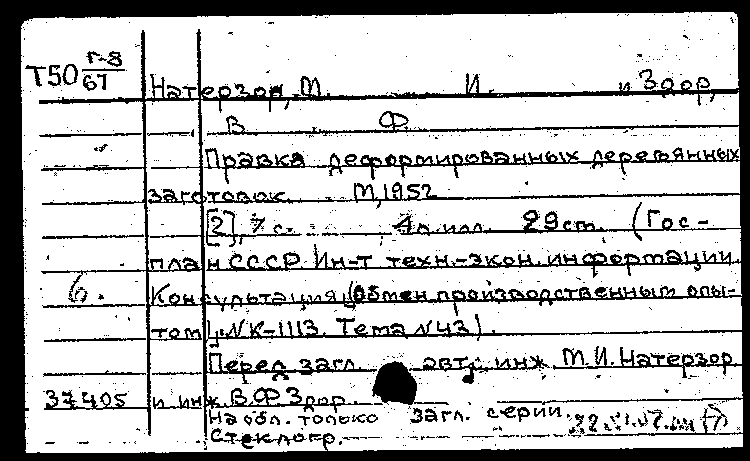 Т50 г-8
67
Натерзон, М. И. и Здор,
В Ф
Правка деформированных деревянных
заготовок. М, 1952
[2], 7 с. 4 л. илл. 29 ст. (Гос-
план СССР. Ин-т техн.-экон. информации
6. Консультация, (Обмен производственным опы-
том). N К-1113. Тема N 43).
Перед загл. авт: инж. М.И. Натерзор
37405 и инж. В.Ф Здор.
На обл. только загл. серии.
Стеклогр.